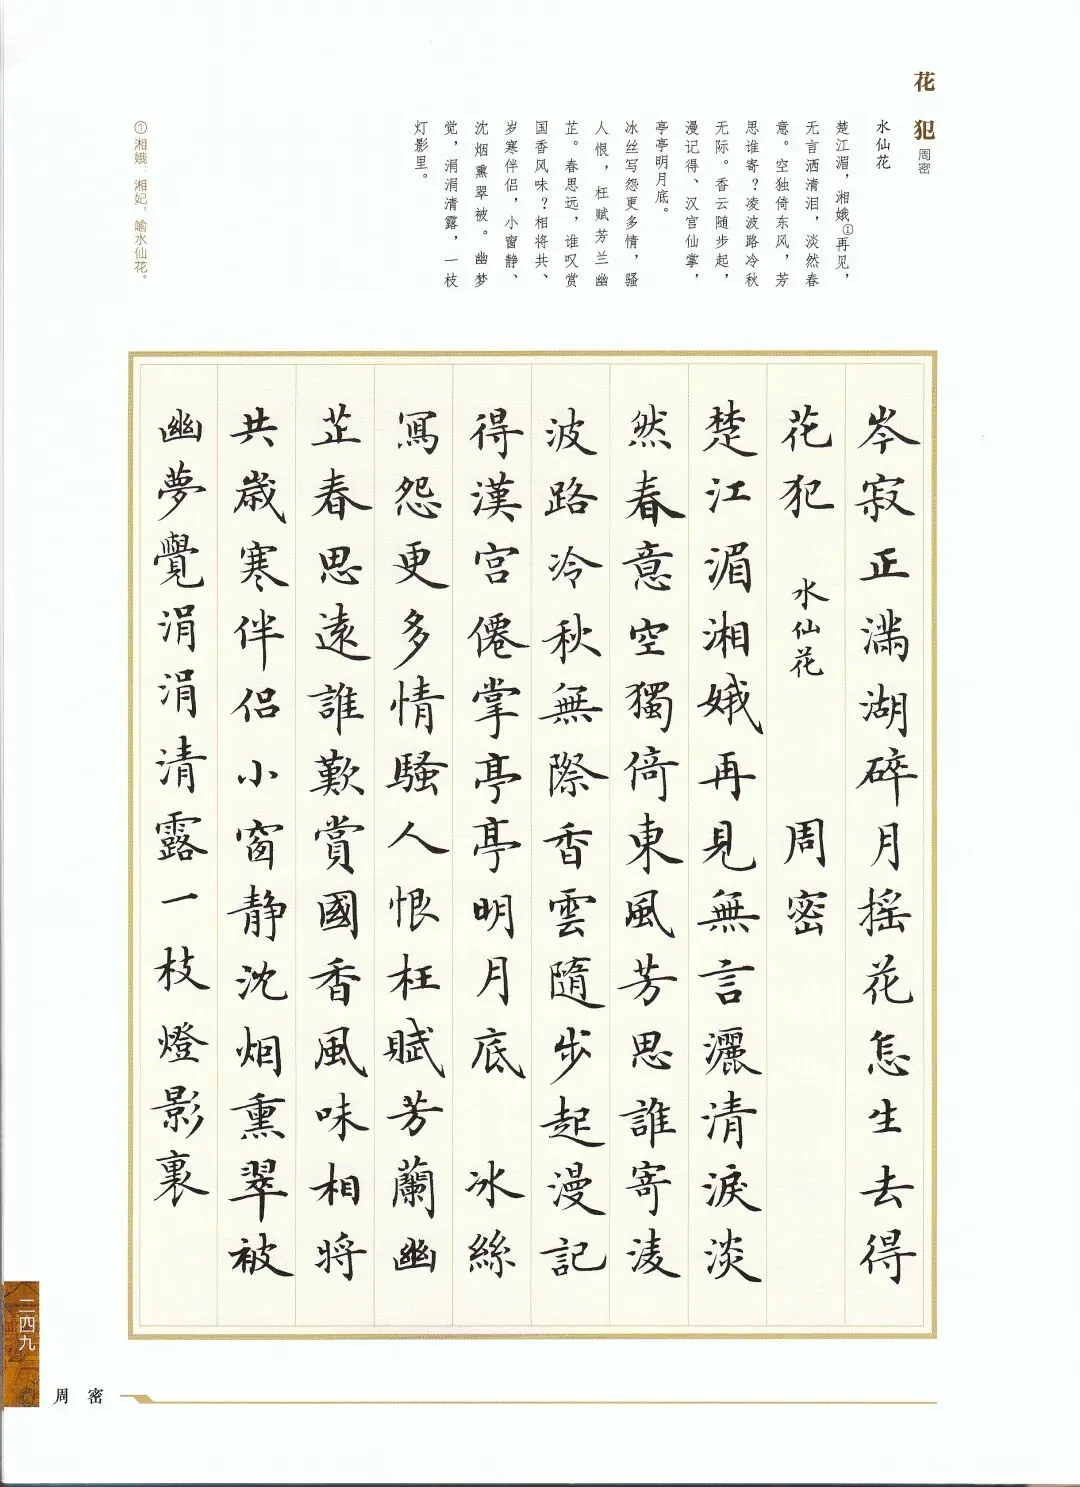 花犯 周密
水仙花
楚江湄，湘娥①再见，
无言洒清泪，淡然春
意。空独倚东风，芳
思谁寄？凌波路冷秋
无际。香云随步起，
漫记得、汉宫仙掌，
亭亭明月底。
冰丝写怨更多情，骚
人恨，枉赋芳兰幽
芷。春思远，谁叹赏
国香风味？相将共、
岁寒伴侣，小窗静、
沈烟熏翠被。幽梦
觉，涓涓清露，一枝
灯影里。
①湘娥：湘妃，喻水仙花。
岑寂正满湖碎月摇花怎生去得
花犯 水仙花 周密
楚江湄湘娥再見無言灑清淚淡
然春意空獨倚東風芳思誰寄淩
波路冷秋無際香雲隨步起漫記
得漢宮僊掌亭亭明月底 冰絲
寫怨更多情騷人恨枉賦芳蘭幽
芷春思遠誰歎賞國香風味相將
共歲寒伴侣小窗静沈烟熏翠被
幽夢覺涓涓清露一枝燈影裏
二四九
周密